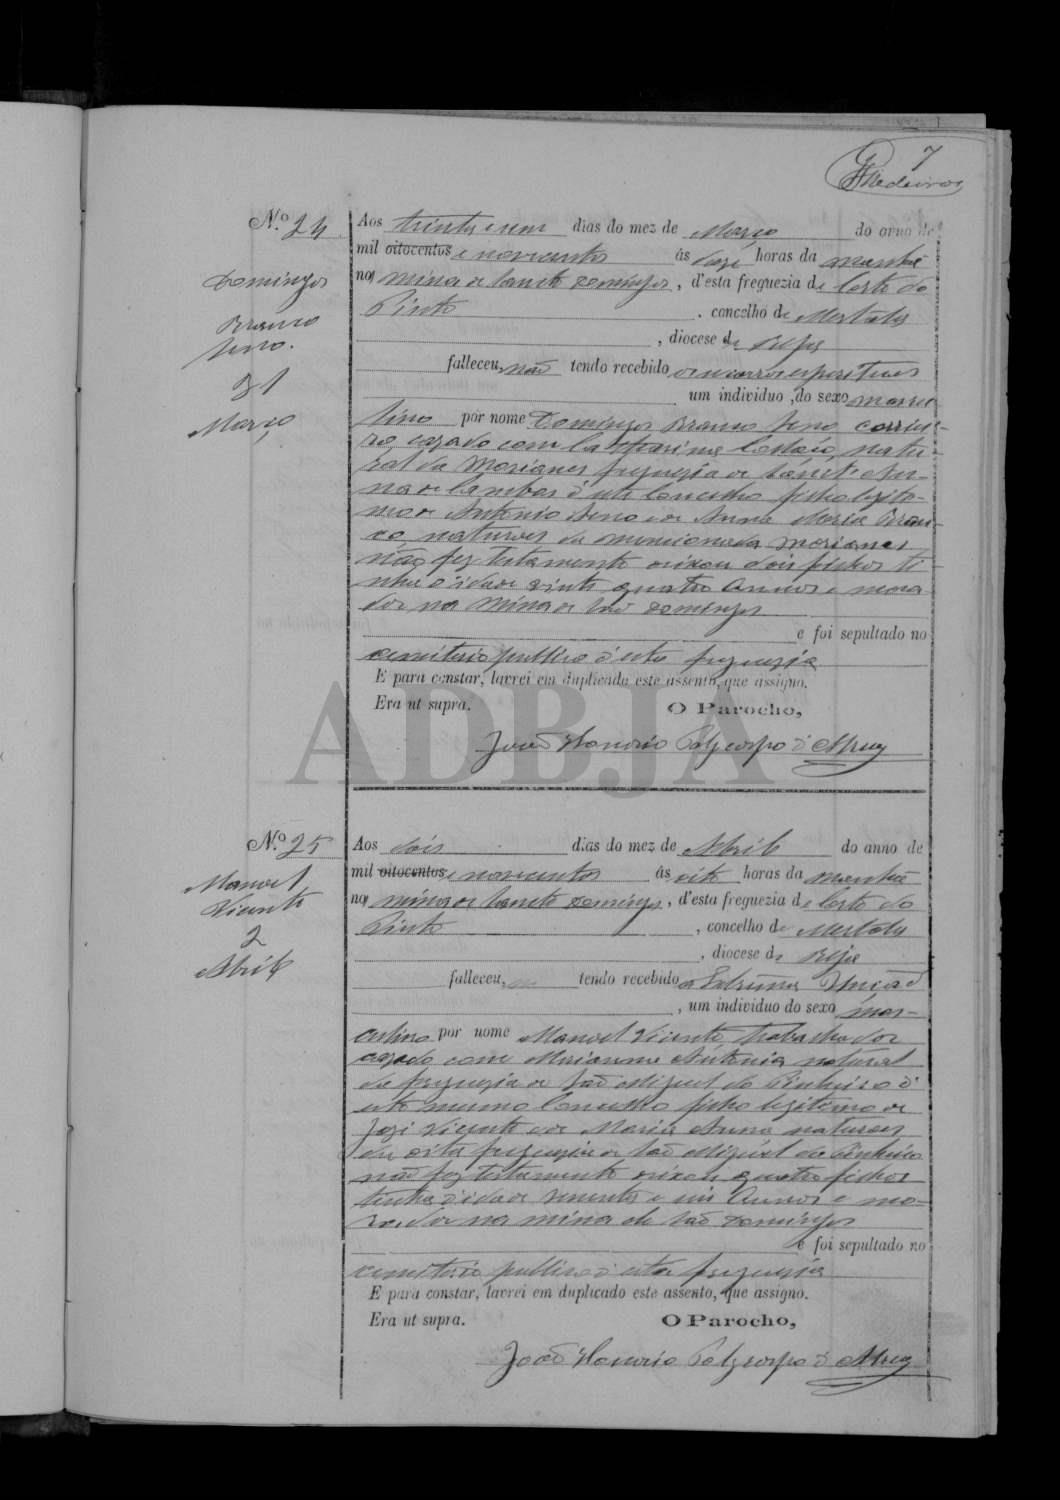 7
Medeiros
N.º 24
Domingos
Branco
Seno.
31
Março
Aos trinta e um dias do mez de Março do anno de
mil oitocentos e novecentos ás horas da manhã
na Mina de Sancto Domingos, d'esta freguezia de Corte do
Pinto, concelho de Mertola
, diocese de Beja
falleceu, não tendo recebido os
um individuo, do sexo mascu-
lino por nome Domingos Branco Seno
casado com natu-
ral da Morianes freguezia de Sanct'An-
na de Cambas d'este Concelho filho legiti-
mo de Antonio Seno e de Anna Maria Bran-
co, naturaes da mencionada Morianes
não fez testamento deixou dois filhos ti-
nha d'idade vinte quatro annos e mora-
dor na Mina de São Domingos
e foi sepultado no
cemiterio publico d'esta freguezia
E para constar, lavrei em duplicada este assento, que assigno.
Era ut supra. O Parocho,
João Honorio
ADBJA
N.º 25
Manoel
Vicente
2
Abril
Aos dois dias do mez de Abril do anno de
mil oitocentos e novecentos ás oito horas da manhã
na Mina de Sancto Domingos, d'esta freguezia de Corte do
Pinto, concelho de Mertola
, diocese de Beja
falleceu, tendo recebido a Extrema Unção
, um individuo do sexo mas-
culino por nome Manoel Vicente, trabalhador
casado com Marianna Antonia natural
da freguezia de São Miguel do Pinheiro d'
este mesmo Concelho filho legitimo de
José Vicente e de Maria Anna naturaes
da dita freguezia de São Miguel do Pinheiro
não fez testamento deixou quatro filhos
tinha d'idade annos e mo-
rador na mina de São Domingos
e foi sepultado no
cemiterio publico d'esta freguezia
E para constar, lavrei em duplicado este assento, que assigno.
Era ut supra. O Parocho,
João Honorio